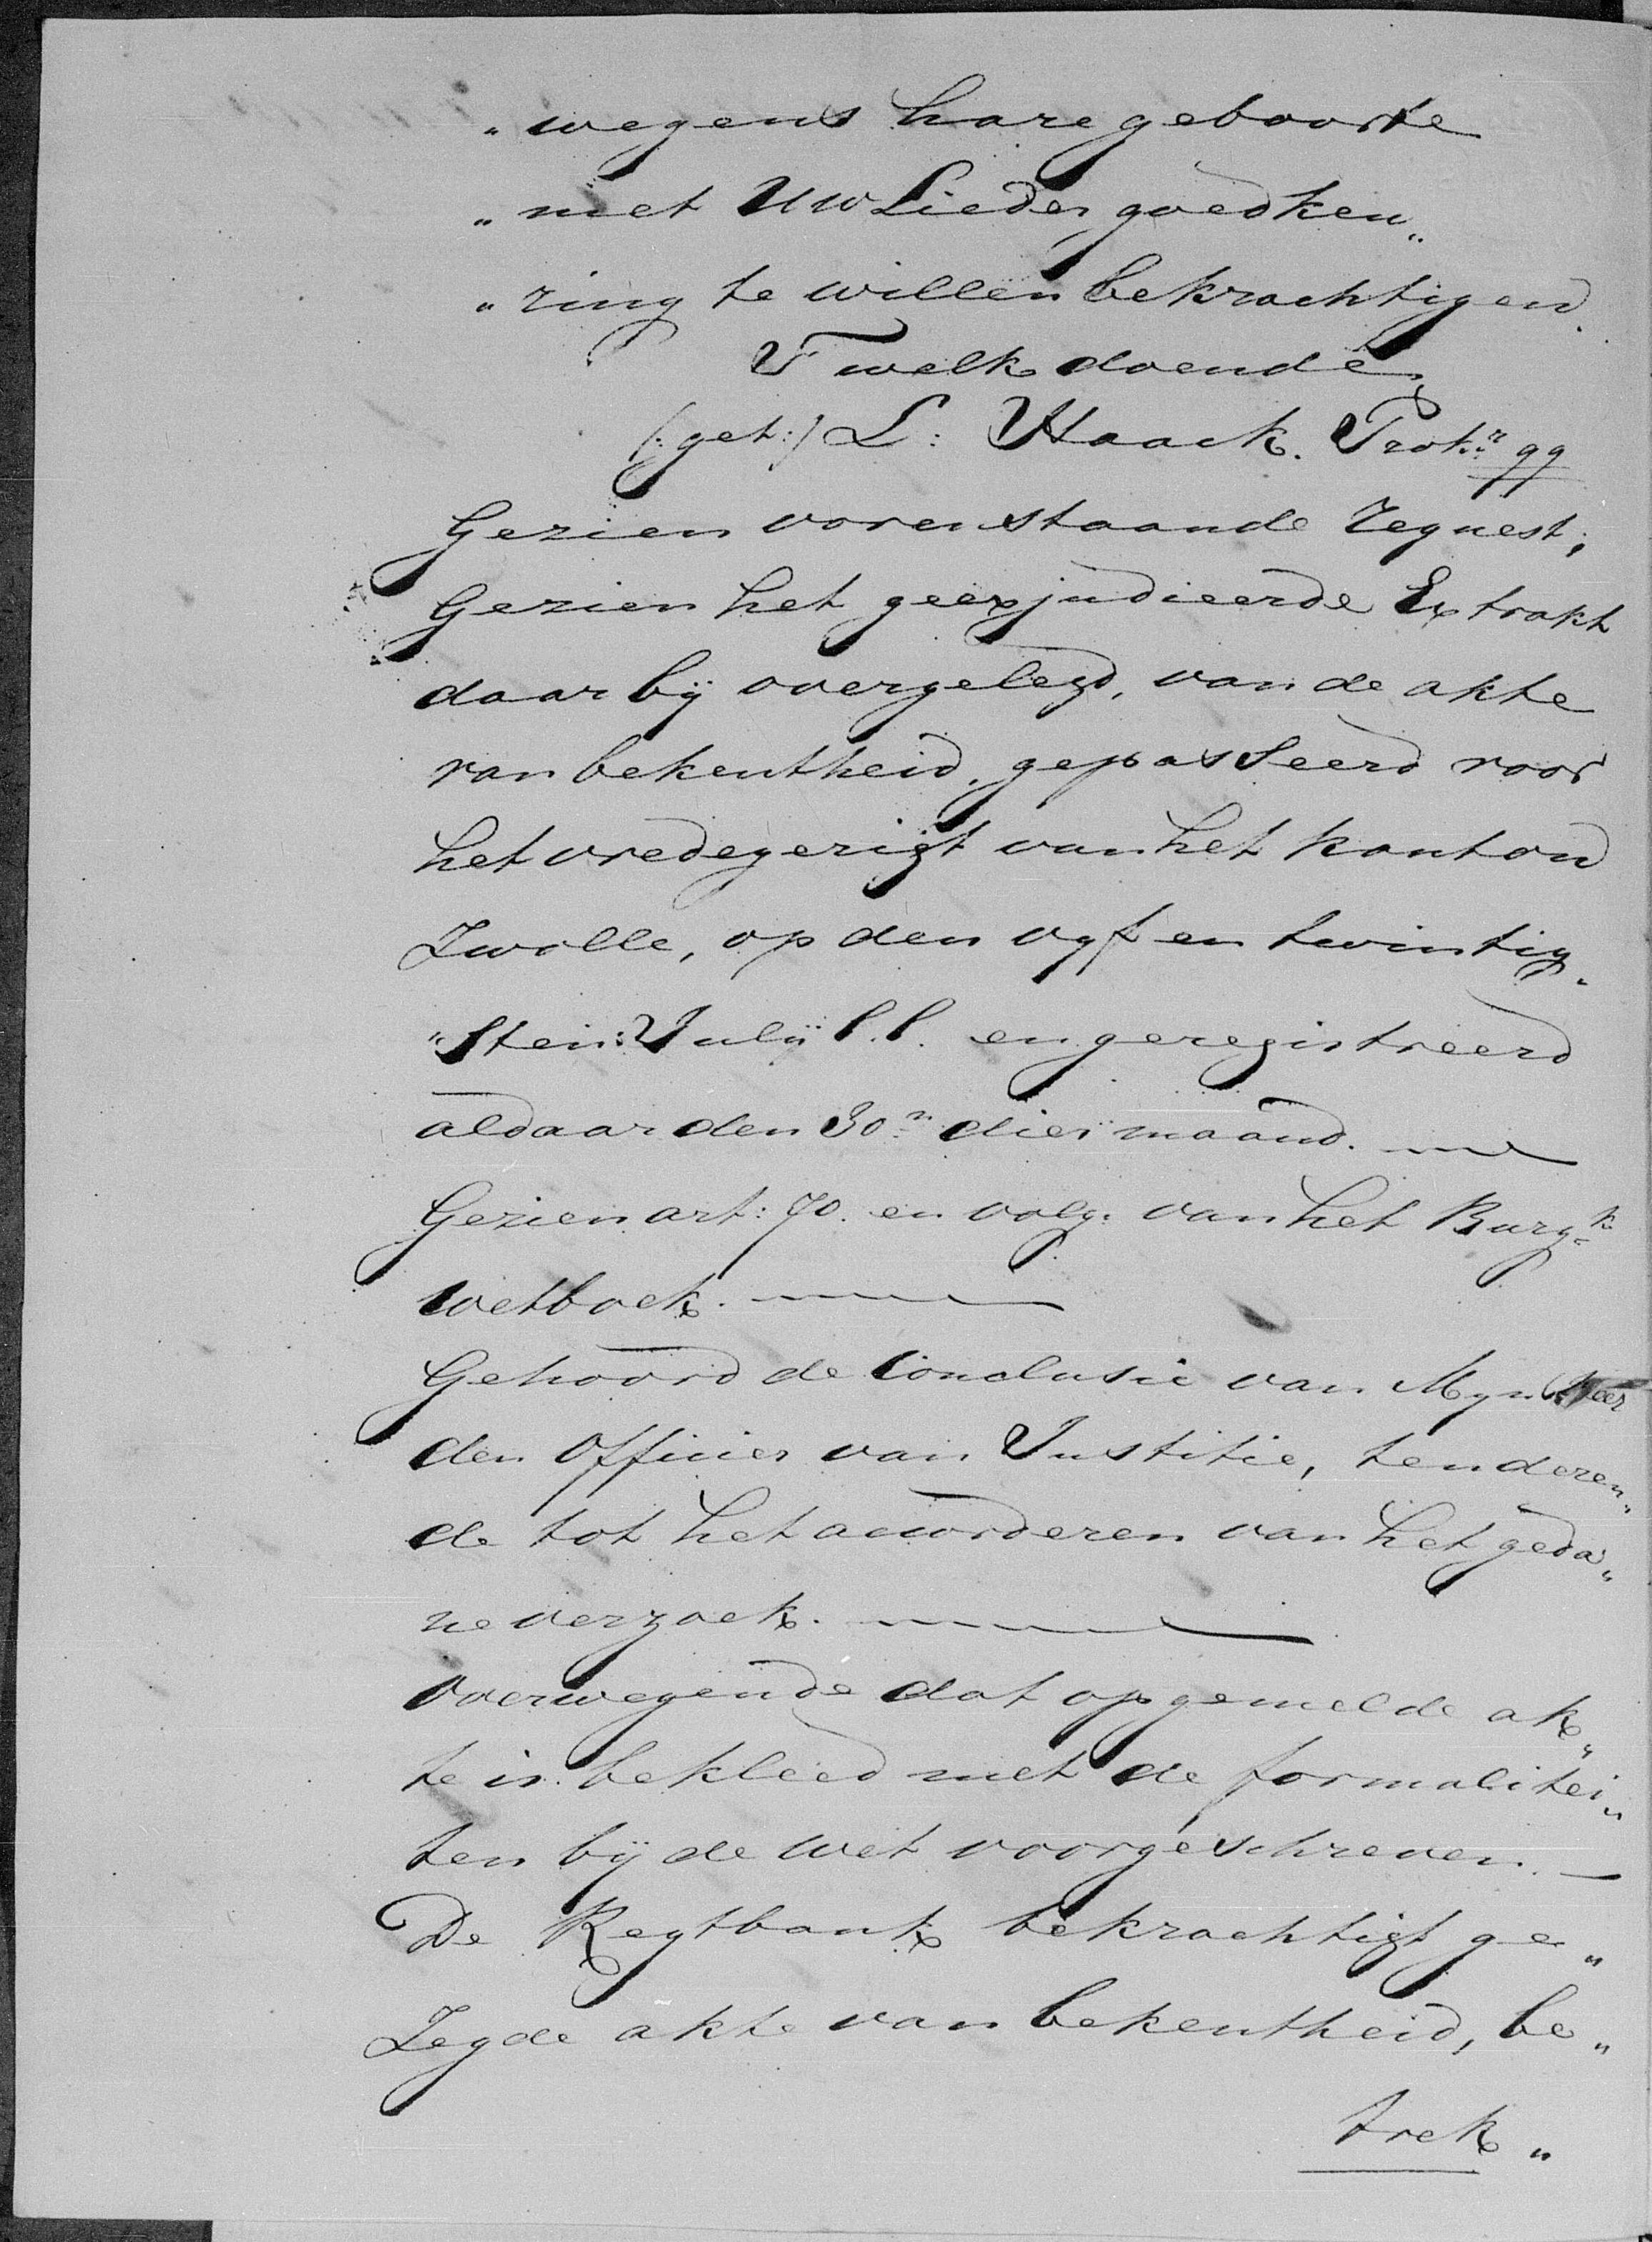 „wegens hare geboorte
„met UwLieder goedkeu„
„ring te willen bekrachtigen.
T welk doende
(:get:) L: Haack. Prokr. qq
Gezien vorenstaande request,
Gezien het geëxjudieerde Extrakt
daar bij overgelegd, van de akte
van bekentheid, gepasseerd voor
het vredegerigt van het kanton
Zwolle, op den vyf en twintig„
„sten Julij l.l. en geregistreerd
aldaar den 30n dier maand.
Gezien art: 70. en volg: van het Burgk
wetboek.
Gehoord de Conclusie van Mijn Heer
den Officier van Justitie, tenderen„
de tot het accorderen van het geda„
ne verzoek.
Overwegende dat opgemelde ak„
te is bekleed met de formalitei„
ten bij de wet voorgeschreven. —
De Regtbank bekrachtigt ge„
zegde akte van bekentheid, be„
trek„